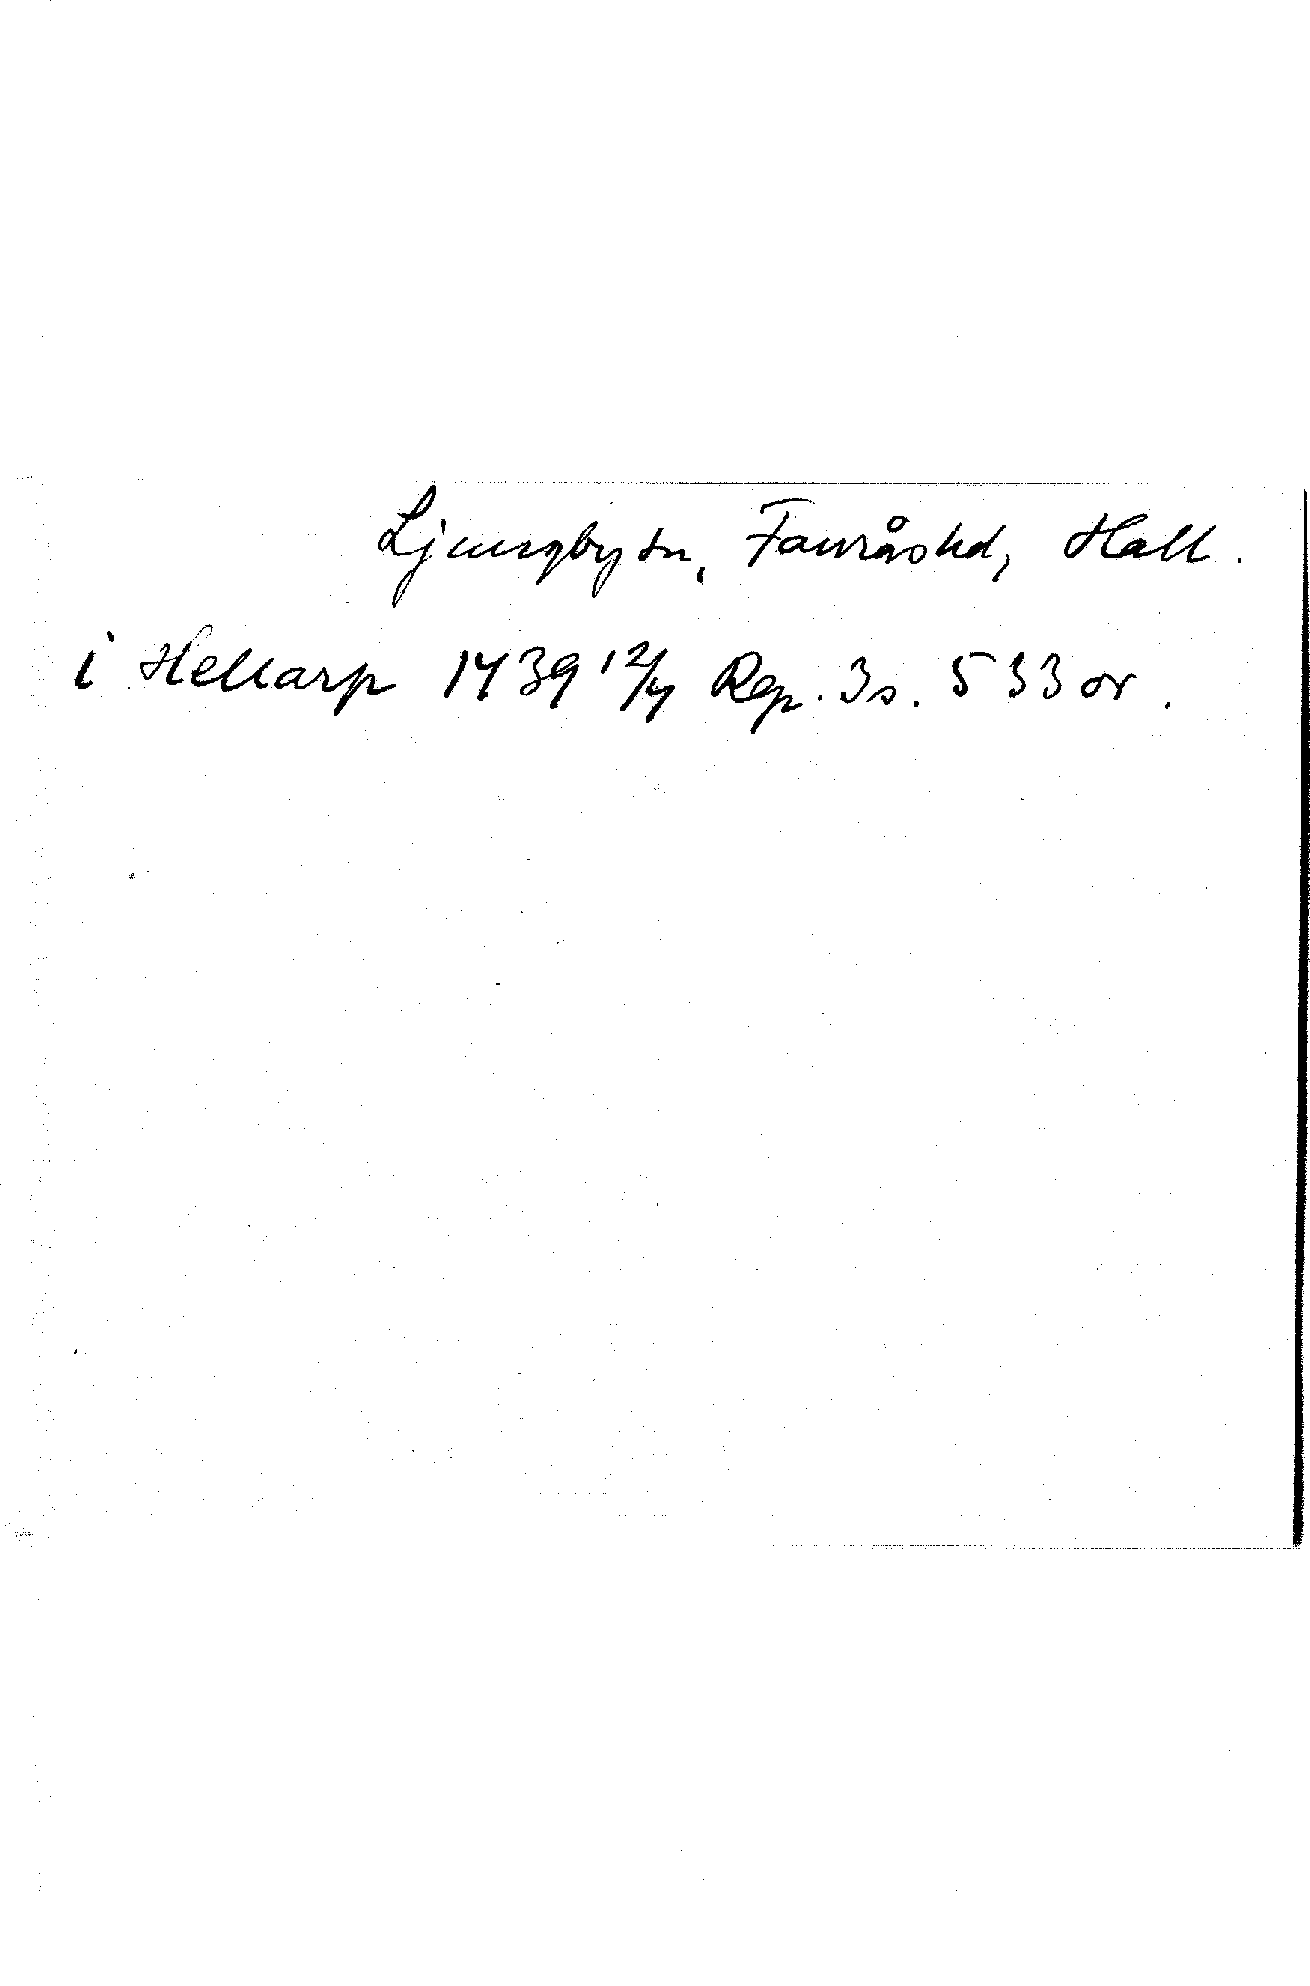 Ljungby sn, Fauråshd, Hall.
i Hellarp 1439 12/4 Rep. 3 s. 533 or.